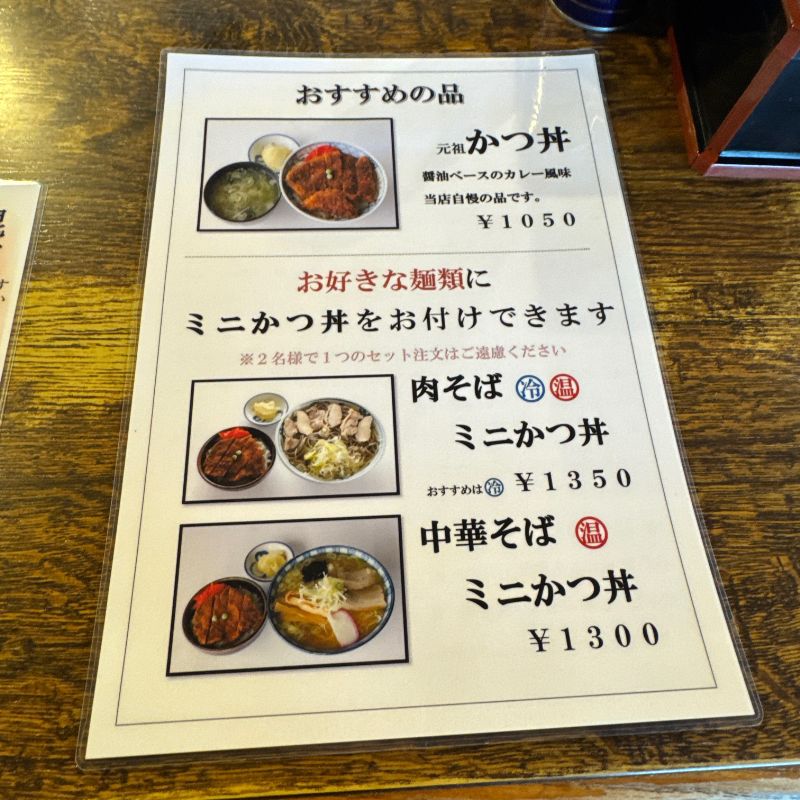 おすすめの品
元祖かつ丼
醤油ベースのカレー風味
当店自慢の品です。
￥1050
お好きな麺類に
ミニかつ丼をお付けできます
※2名様で1つのセット注文はご遠慮ください
肉そば 冷 温
ミニかつ丼
おすすめは冷 ￥1350
中華そば 温
ミニかつ丼
￥1300